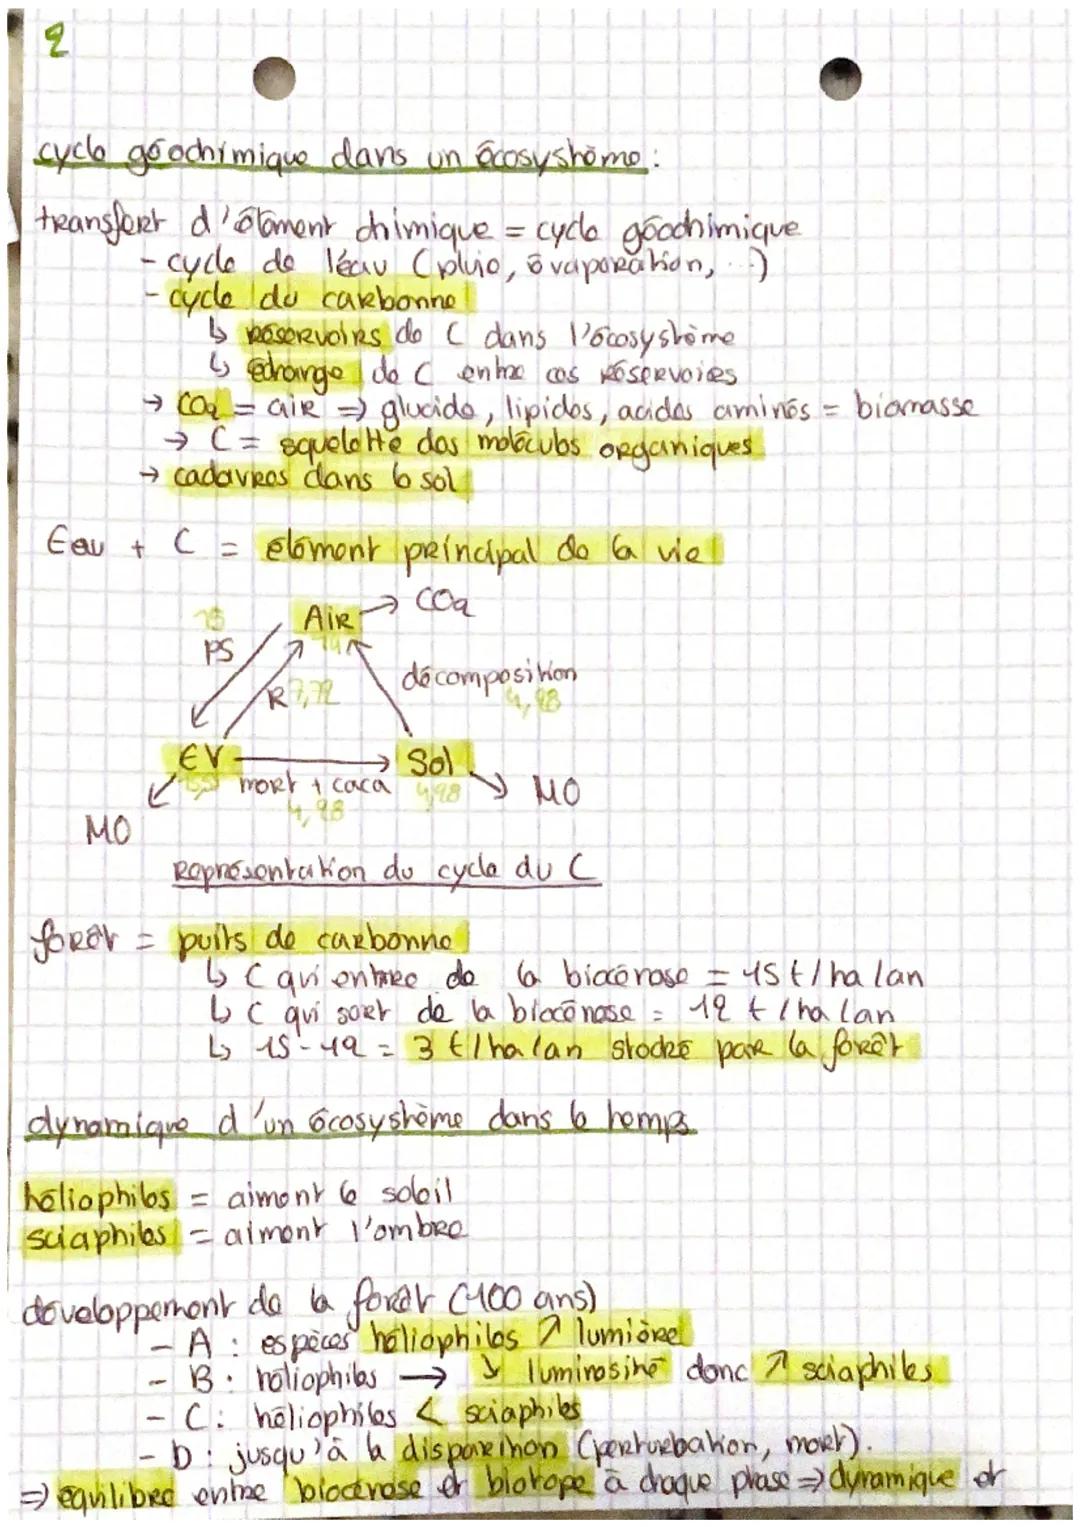 2
cycle géochimique dans un écosystème :
transfert d'élément chimique = cycle géochimique
- cycle de l'éau (pluie, évaporation, ...)
- cycle du carbonne
↳ réservoirs de C dans l'écosystème
↳ échange de C entre ces réservoires
→ CO2 = air ⇒ glucide, lipides, acides aminés = biomasse
→ C = squelette des molécules organiques
→ cadavres dans le sol
Eau + C = élément principal de la vie
15 Air → CO2
PS
R 7,72
décomposition
4,98
EV Sol
mort + caca 4,98 MO
4,98
MO
Représentation du cycle du C
forêt = puits de carbonne
↳ C qui entree de la biocénose = 15 t/ha/an
↳ C qui sort de la biocénose = 12 t/ha/an
↳ 15-12 = 3 t/ha/an stocké par la forêt
dynamique d'un écosystème dans le temps
héliophiles = aiment le soleil
sciaphiles = aiment l'ombre
développement de la forêt (100 ans)
- A : espèces héliophiles ↗ lumière
- B : héliophiles → ↘ luminosité donc ↗ sciaphiles
- C : héliophiles < sciaphiles
- D : jusqu'à la disparition (perturbation, mort).
⇒ équilibre entre biocénose et biotope à chaque phase ⇒ dynamique et